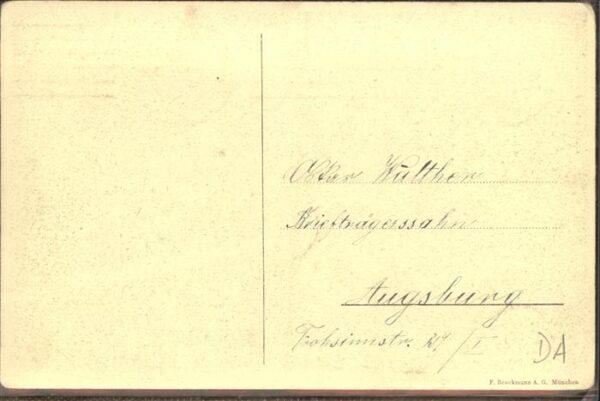 Oskar Walther
Briefträgerssohn
Augsburg
27/I
DA
F. Bruckmann A. G. München